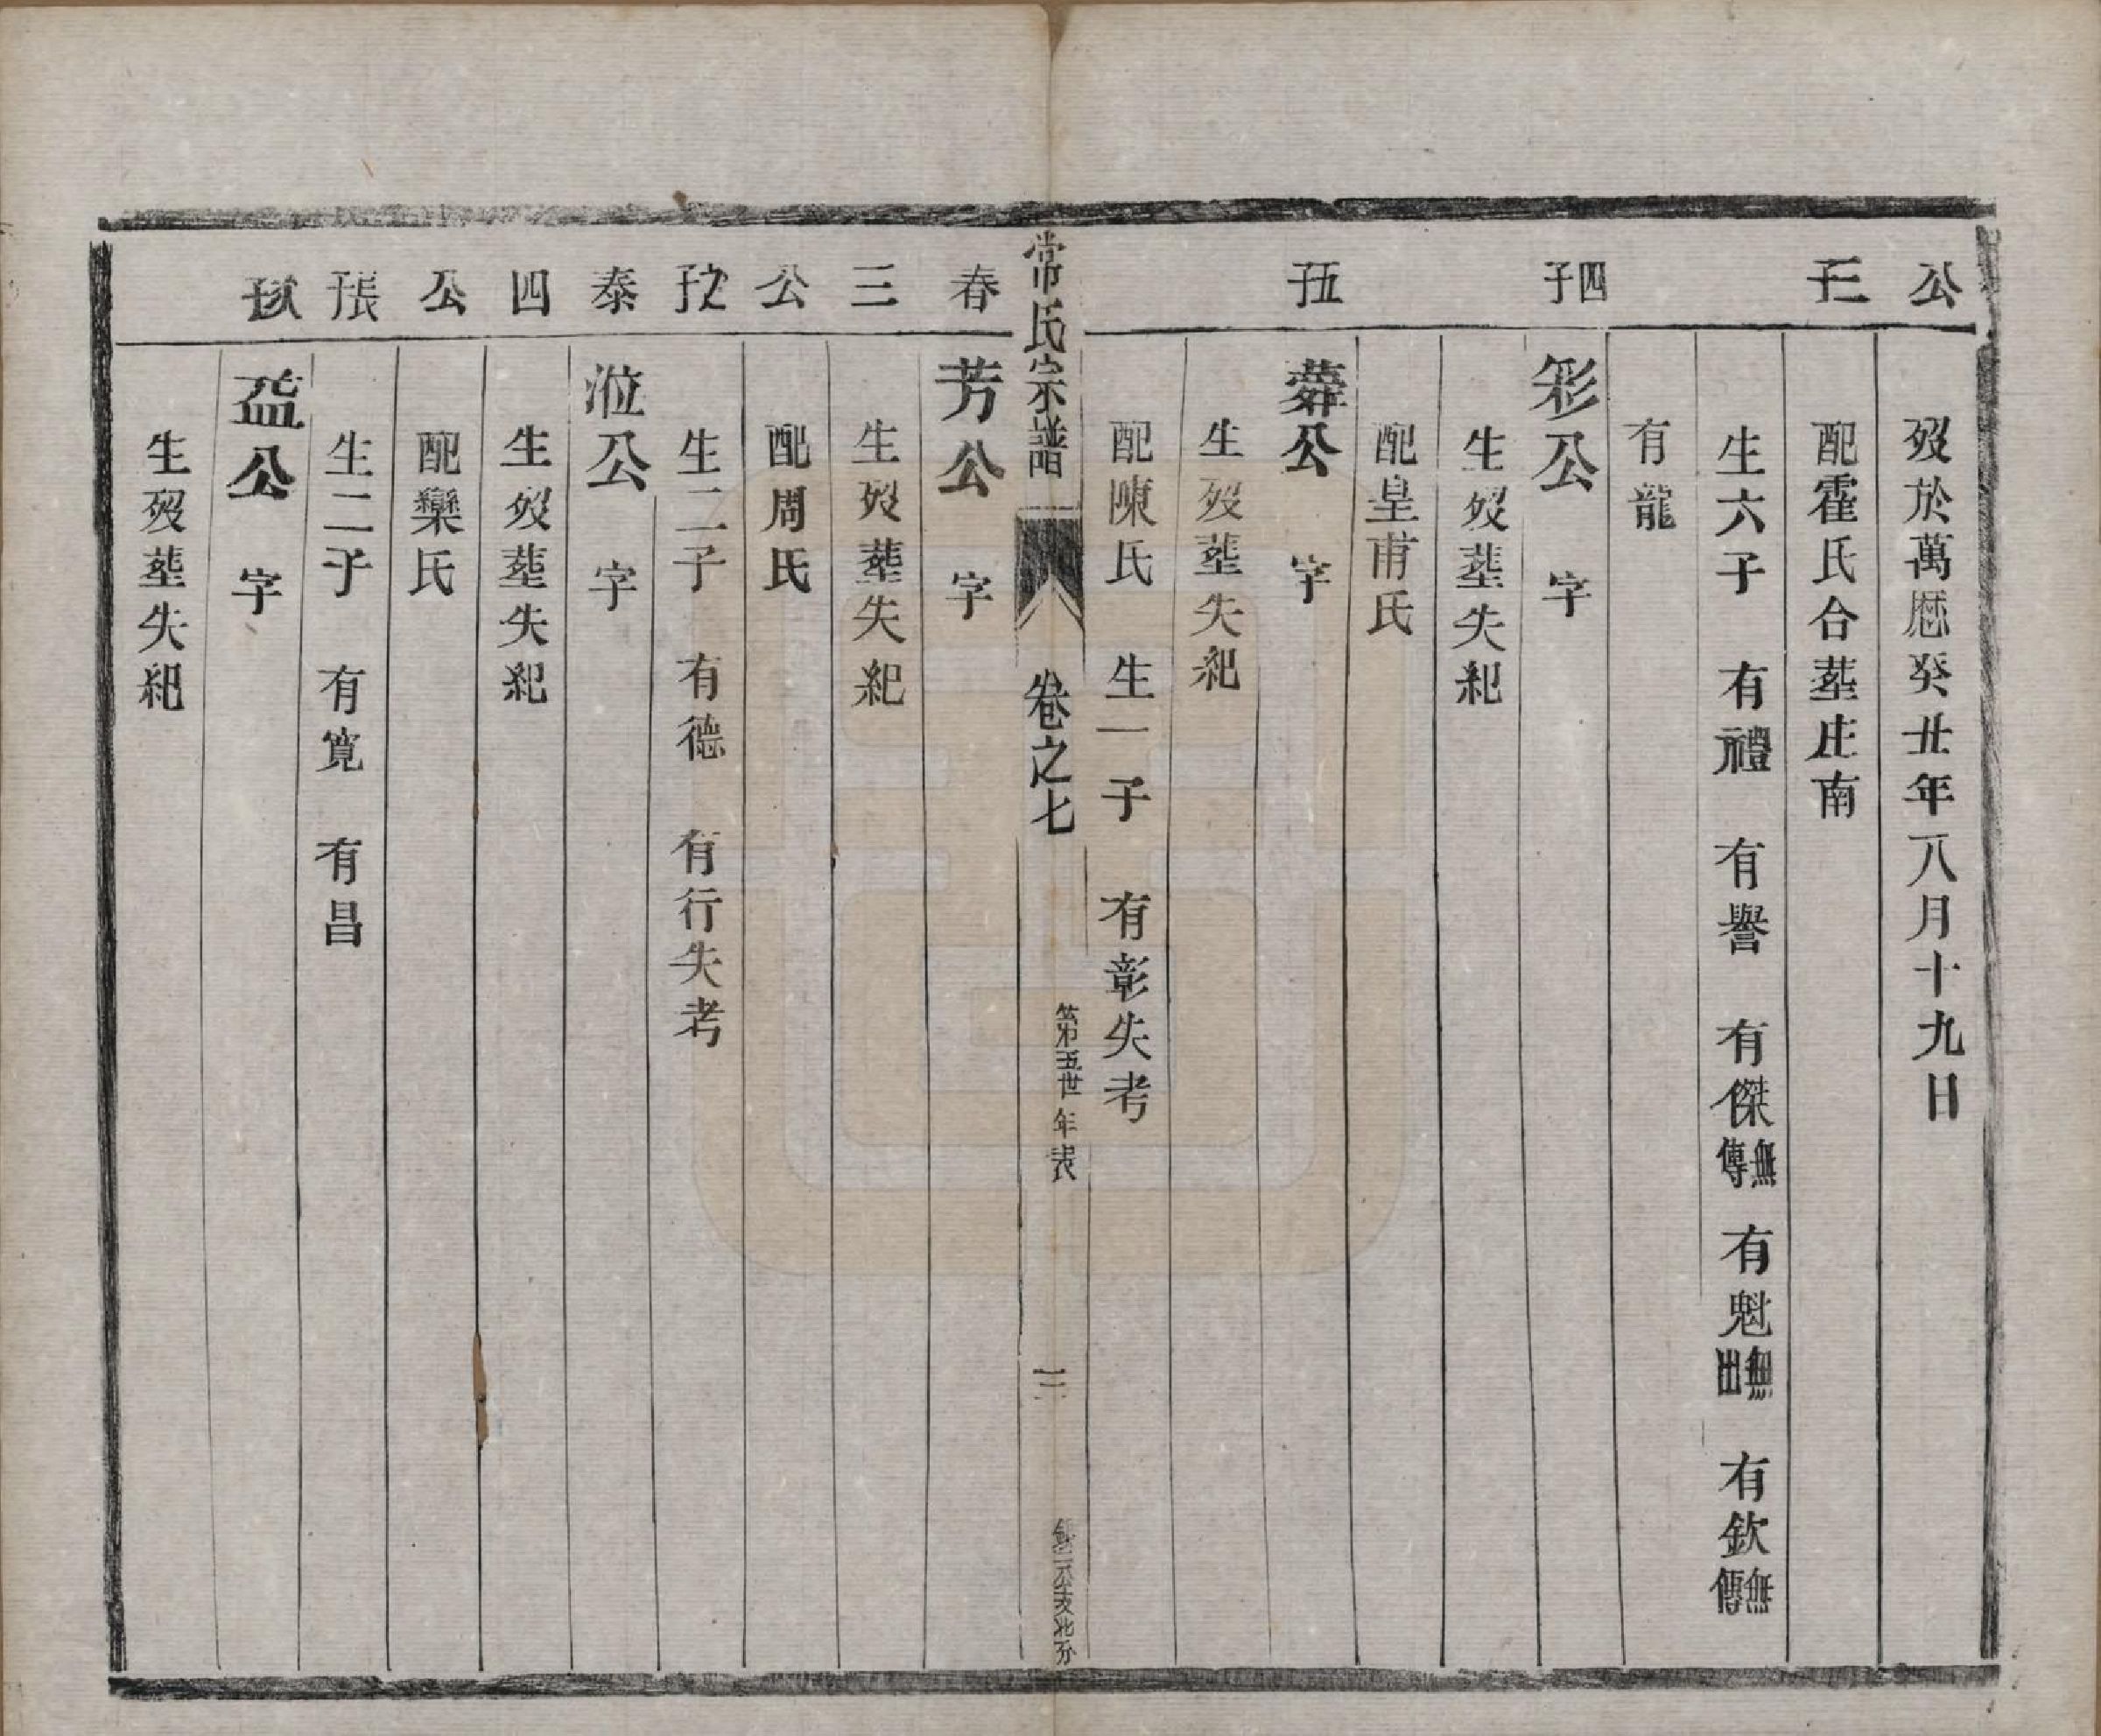 公
歿於萬厯癸丑年八月十九日
三子
配霍氏合塟庄南
生六子 有禮 有譽 有傑無傳 有魁無出 有欽無傳
有龍
四子
彩公 字
生歿塟失紀
配皇甫氏
五子
公 字
生歿塟失紀
配陳氏 生一子 有彰失考
常氏宗譜 卷之七 第五世年表 三 支北分
春
芳公 字
三
生歿塟失紀
公
配周氏
次子
生二子 有德 有行失考
泰
涖公 字
四
生歿塟失紀
公
配欒氏
長子
生二子 有寬 有昌
次子
益公 字
生歿塟失紀